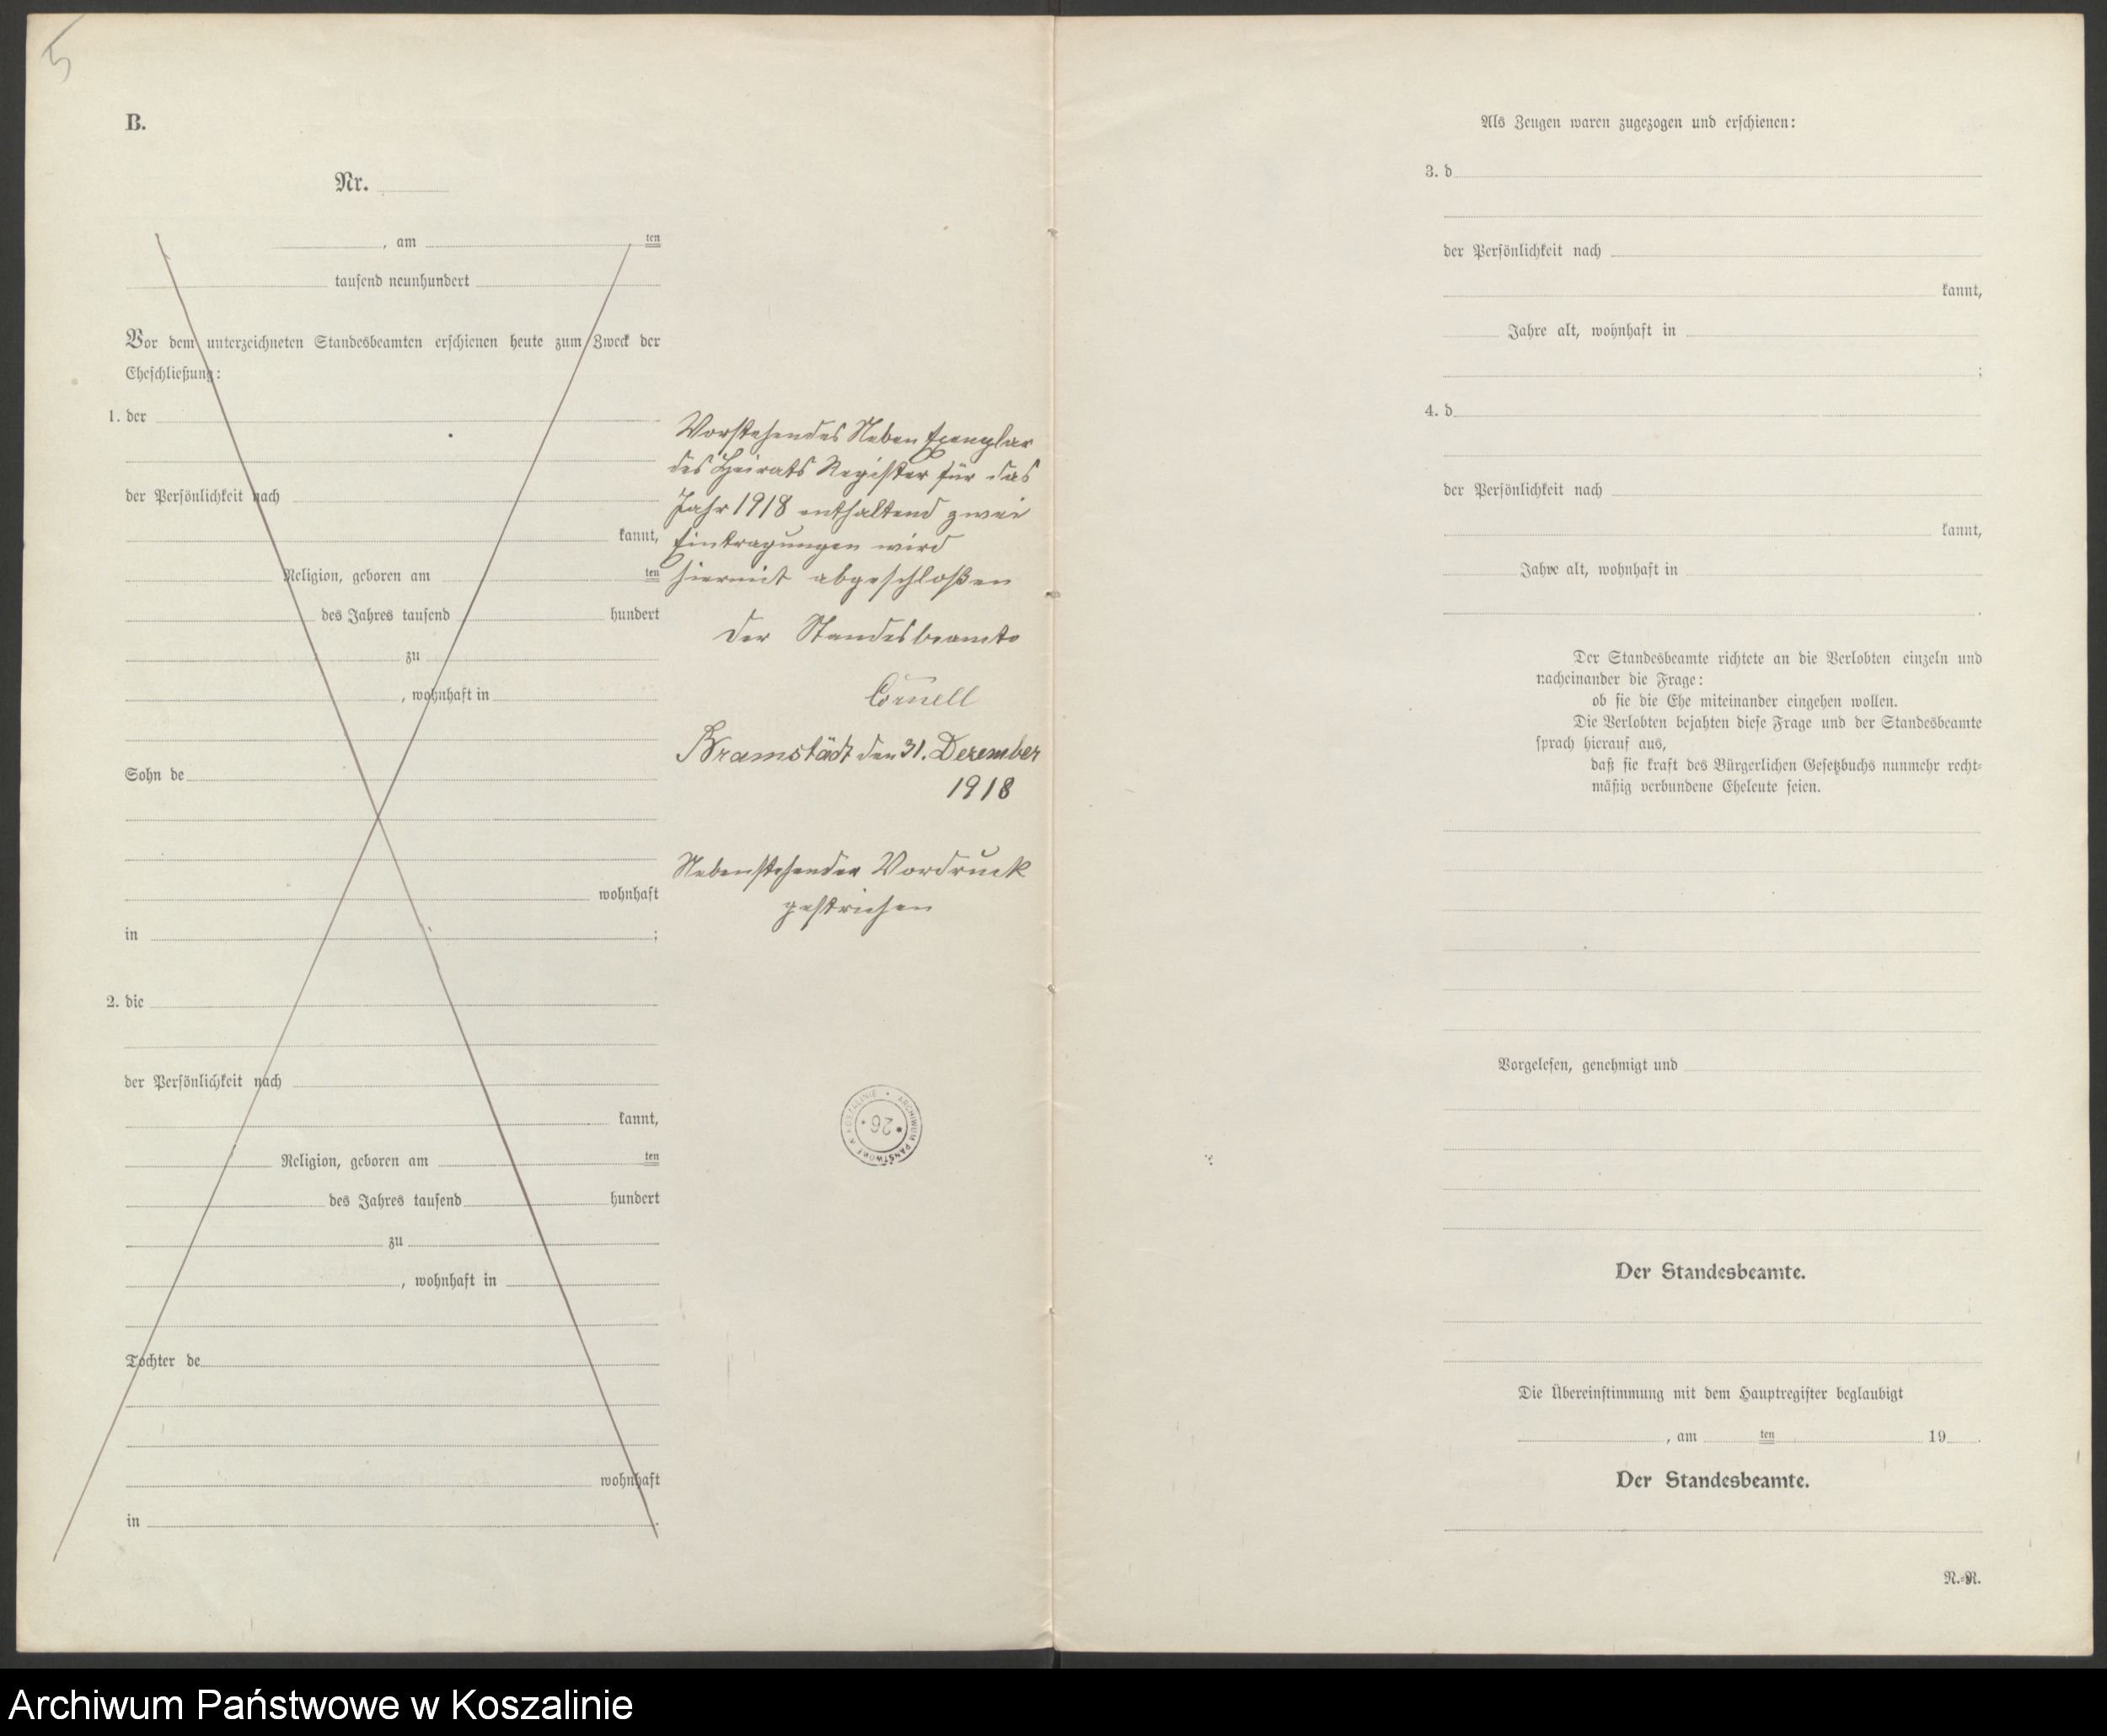 5
B.
Nr.
, am ten
tausend neunhundert
Vor dem unterzeichneten Standesbeamten erschienen heute zum Zweck der
Eheschließung:
1. der
der Persönlichkeit nach
kannt,
Religion, geboren am ten
des Jahres tausend hundert
zu
, wohnhaft in
Sohn de
wohnhaft
in ;
2. die
der Persönlichkeit nach
kannt,
Religion, geboren am ten
des Jahres tausend hundert
zu
, wohnhaft in
Tochter de
wohnhaft
in .
Vorstehendes Neben Exemplar
des Heirats Register für das
Jahr 1918 enthaltend zwei
Eintragungen wird
hiermit abgeschloßen
Der Standesbeamte
Cornell
Bramstädt den 31. Dezember
1918
Nebenstehender Vordruck
gestrichen
ARCHIWUM PAŃSTWOWE W KOSZALINIE
26
Als Zeugen waren zugezogen und erschienen:
3. d
der Persönlichkeit nach
kannt,
Jahre alt, wohnhaft in
;
4. d
der Persönlichkeit nach
kannt,
Jahre alt, wohnhaft in
.
Der Standesbeamte richtete an die Verlobten einzeln und
nacheinander die Frage:
ob sie die Ehe miteinander eingehen wollen.
Die Verlobten bejahten diese Frage und der Standesbeamte
sprach hierauf aus,
daß sie kraft des Bürgerlichen Gesetzbuchs nunmehr recht-
mäßig verbundene Eheleute seien.
Vorgelesen, genehmigt und
Der Standesbeamte.
Die Übereinstimmung mit dem Hauptregister beglaubigt
, am ten 19 .
Der Standesbeamte.
N.-R.
Archiwum Państwowe w Koszalinie